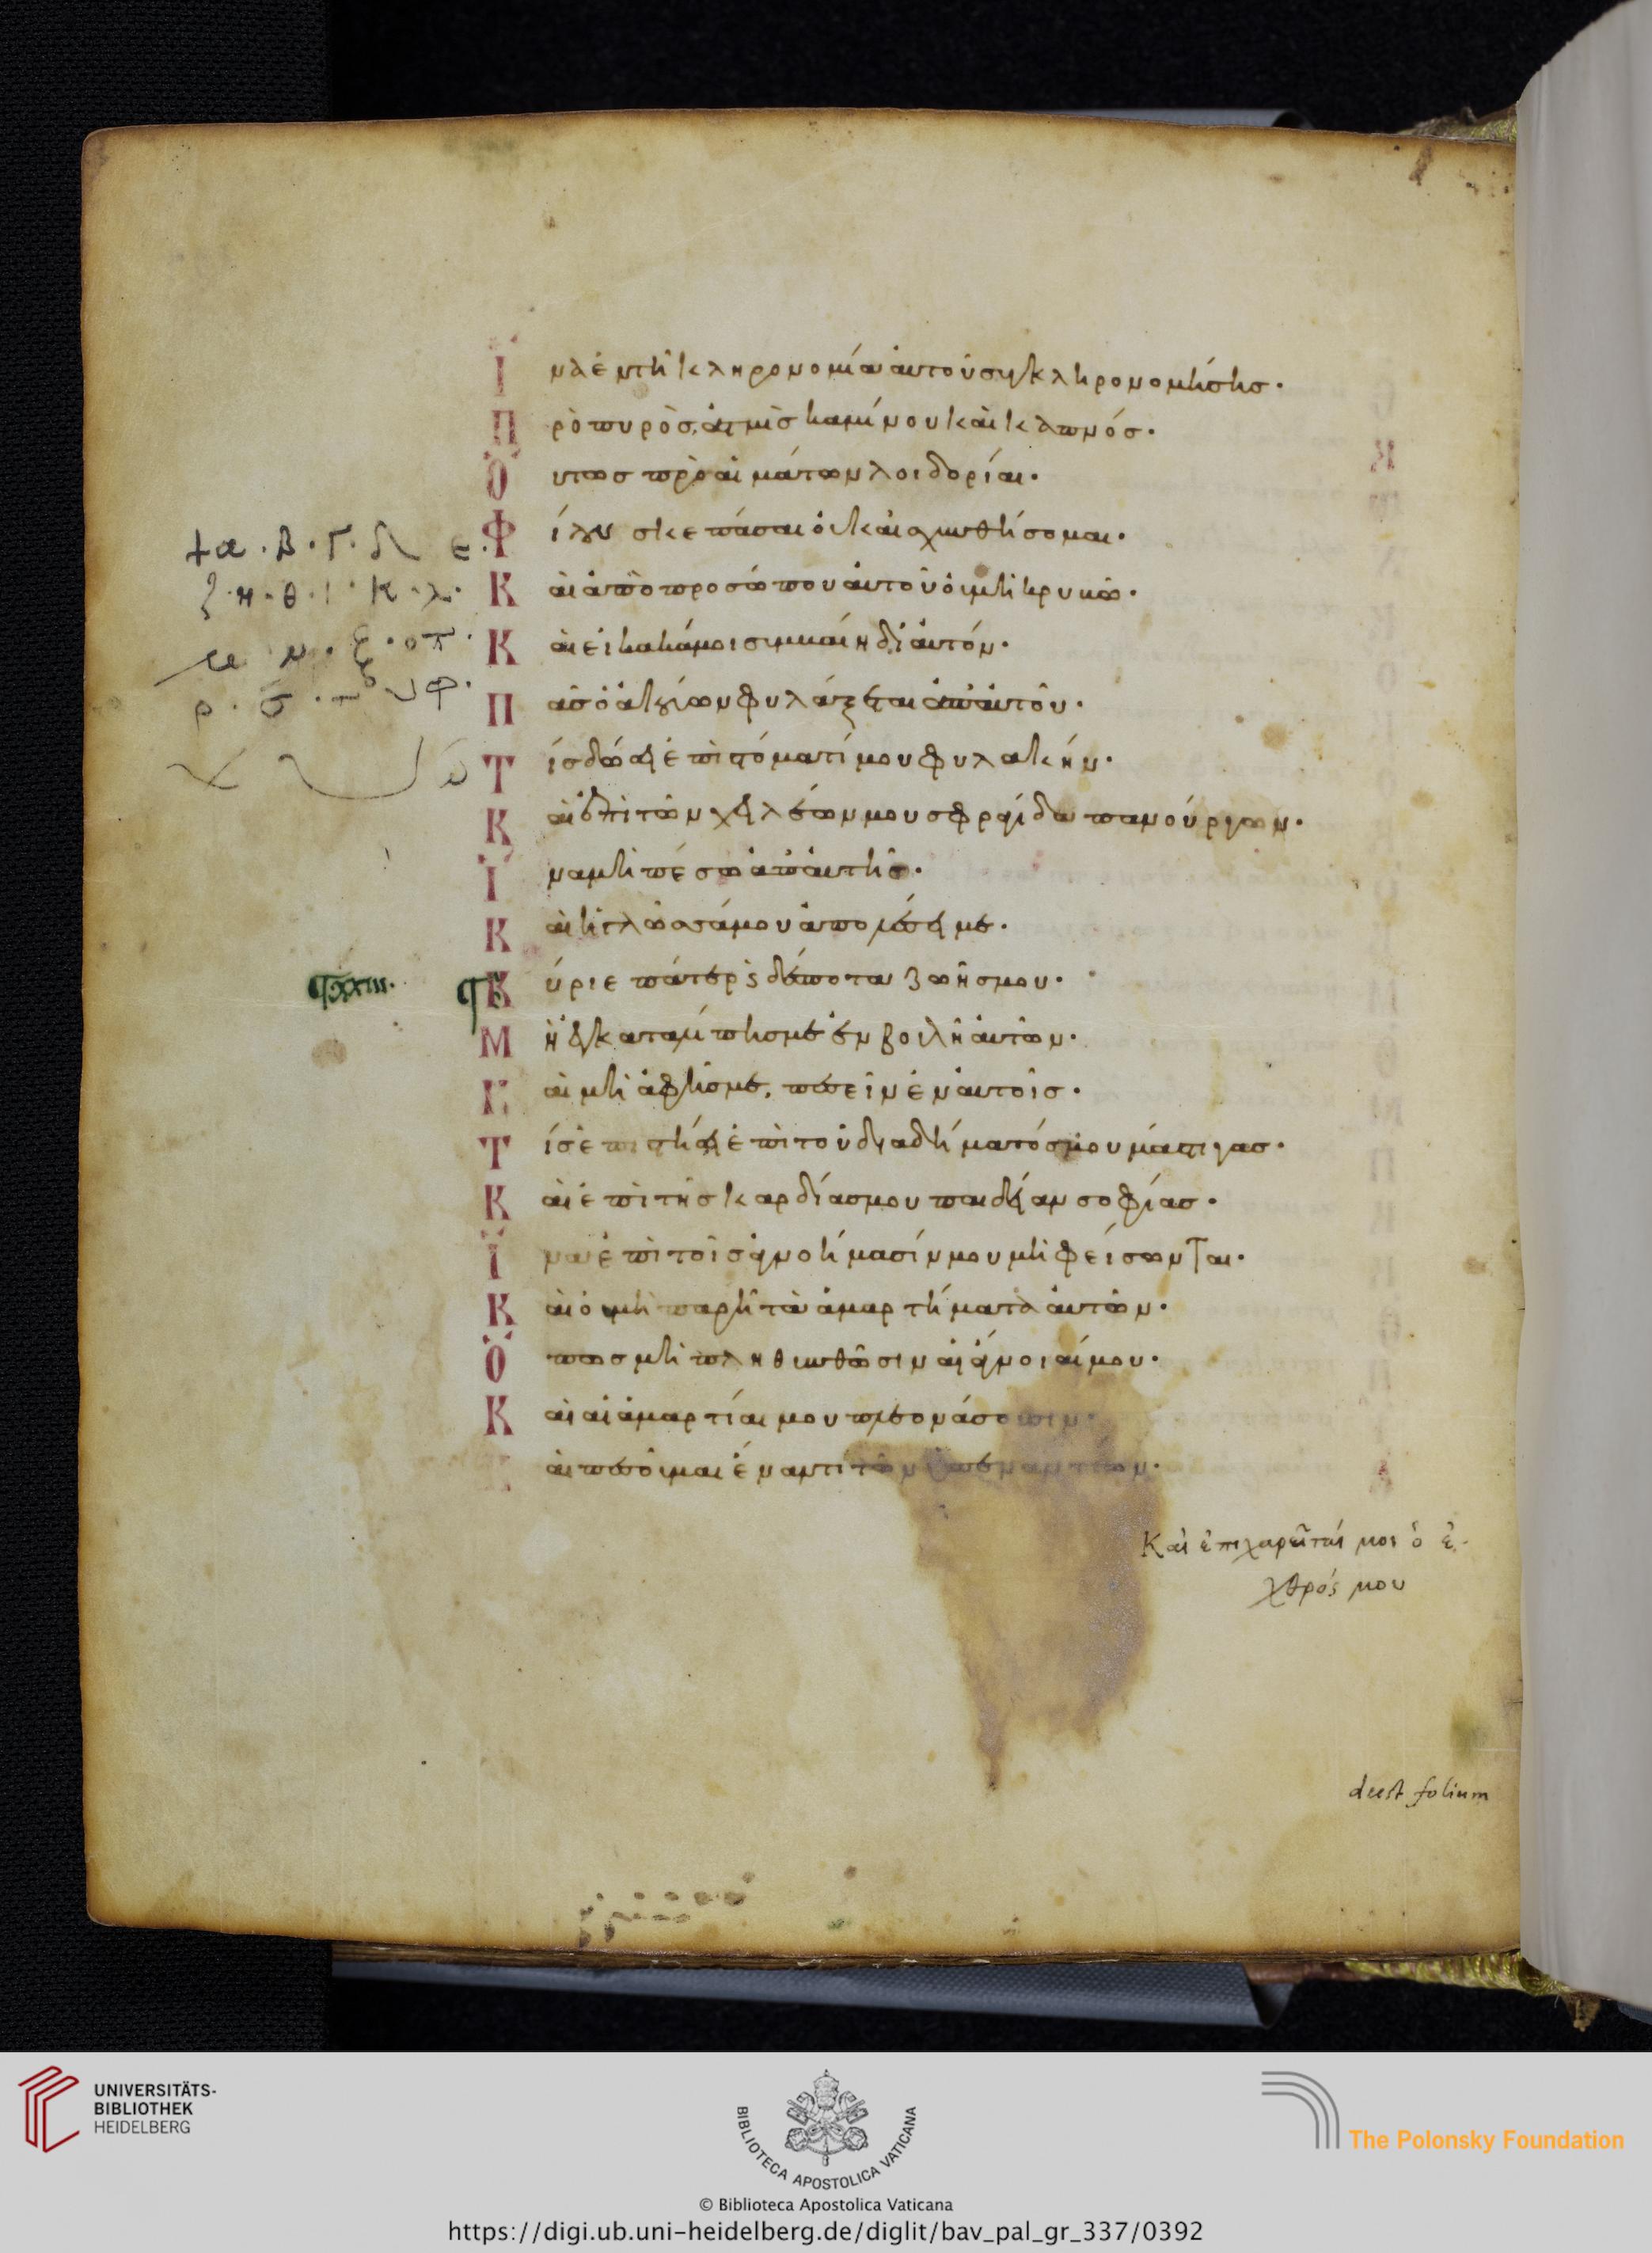 Ἵνα ἐν τῆ κληρονομία αὐτοῦ συγκληρονομήσησ·
Πρὸ πυρὸσ, ἀτμὶσ καμίνου καὶ καπνόσ·
Οὕτωσ πρὸ αἱμάτων λοιδορίαι·
Φίλον σκεπάσαι οὐκ αἰσχυνθήσομαι·
Καὶ ἀπὸ προσώπου αὐτοῦ οὐ μὴ κρυβῶ·
Καὶ εἰ κακά μοι συμβαίη δι' αὐτόν·
Πᾶσ ὁ ἀκούων φυλάξεται ἀπ' αὐτοῦ·
Τίσ δώσει ἐπὶ στόματί μου φυλακήν·
Καὶ ἐπὶ τῶν χειλέων μου σφραγίδα πανούργων·
Ἵνα μὴ πέσω ἀπ' αὐτῆσ·
Καὶ ἡ γλῶσσά μου ἀπολέσει με·
Κύριε πάτερ ϗ δέσποτα ζωῆσ μου·
Μὴ ἐγκαταλίπησ με ἐν βουλῆ αὐτῶν·
Καὶ μὴ ἀφῆσ με, πεσεῖν ἐν αὐτοῖσ·
Τίσ ἐπιστήσει ἐπὶ τοῦ διανοήματόσ μου μάστιγασ·
Καὶ ἐπὶ τῆσ καρδίασ μου παιδείαν σοφίασ·
Ἵνα ἐπὶ τοῖσ ἀγνοήμασίν μου μὴ φείσωνται·
Καὶ οὐ μὴ παρῆ τὰ ἁμαρτήματα αὐτῶν·
Ὅπωσ μὴ πληθυνθῶσιν αἱ ἄγνοιαί μου·
Καὶ αἱ ἁμαρτίαι μου πλεονάσωσιν·
Καὶ πεσοῦμαι ἔναντι τῶν ὑπεναντίων·
+α·β·γ·δ ε·
ζ·η·θ·ι·κ·λ·
μ ν·ξ·οπ·
ρ·σ·τ υφ·
χ ψ ω
xxiii.
Καὶ ἐπιχαρεῖταί μοι ὁ ἐ-
χθρός μου
deest folium
UNIVERSITÄTS-
BIBLIOTHEK
HEIDELBERG
BIBLIOTECA APOSTOLICA VATICANA
The Polonsky Foundation
© Biblioteca Apostolica Vaticana
https://digi.ub.uni-heidelberg.de/diglit/bav_pal_gr_337/0392